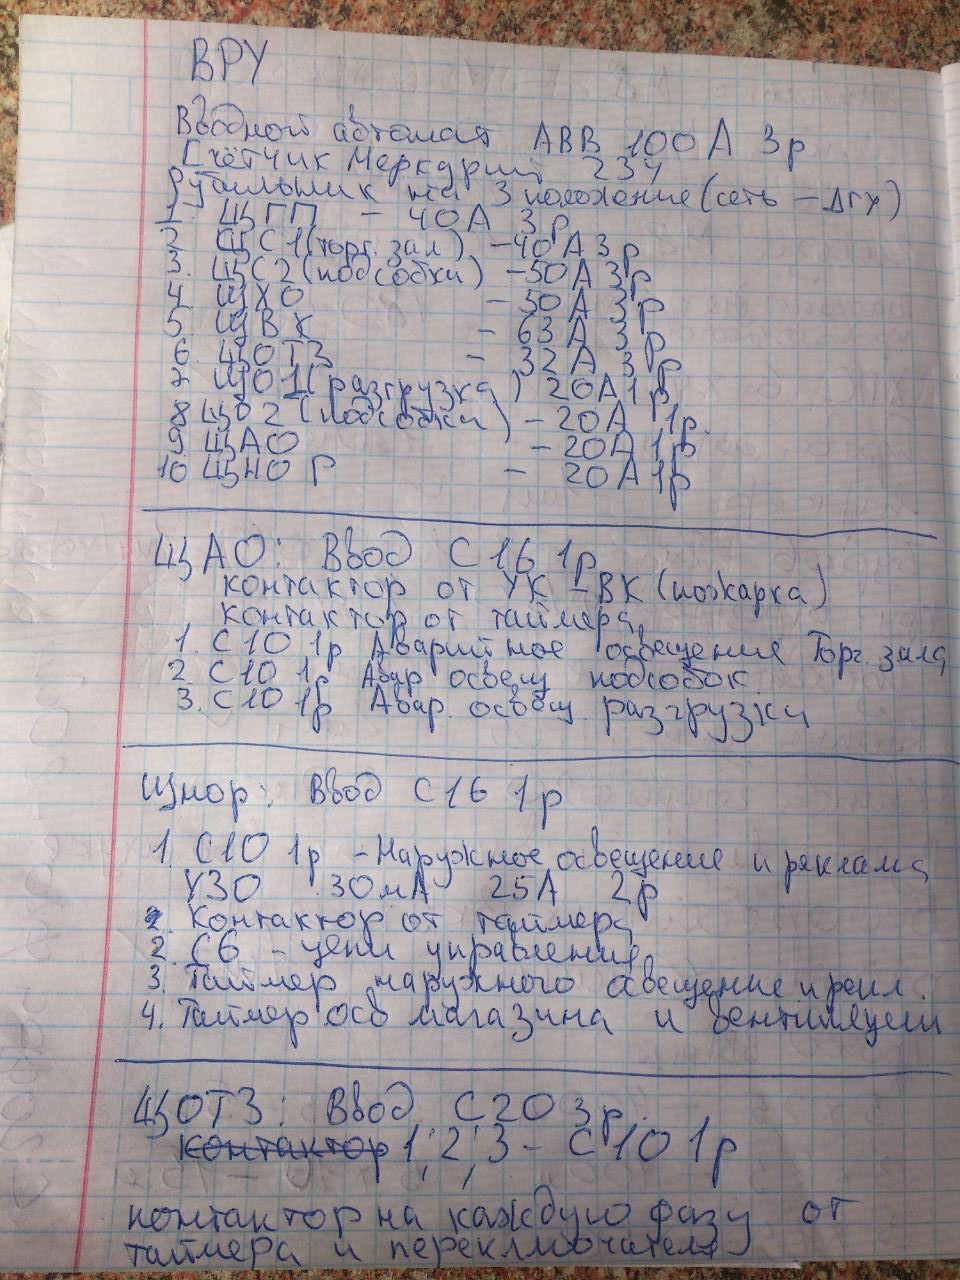 ВРУ
Вводной автомат АВВ 100А 3р
Счётчик Меркурий 234
Рубильник на 3 положение (сеть – ДГУ)
1. ЩГП – 40А 3р
2 ЩС1 (торг. зал) – 40А 3р
3. ЩС2 (подсобки) – 50А 3р
4 ЩХО – 50А 3р
5. ЩВК – 63А 3р
6. ЩОТЗ – 32А 3р
7 ЩО1 (разгрузка) 20А 1р
8 ЩО2 (подсобки) – 20А 1р.
9 ЩАО – 20А 1р
10 ЩНОР – 20А 1р
ЩАО: Ввод С16 1р
контактор от УК–ВК (пожарка)
контактор от таймера
1. С10 1р Аварийное освещение Торг. зала
2 С10 1р Авар освещ подсобок.
3. С10 1р Авар. освещ. разгрузки
Щнор: Ввод С16 1р
1. С10 1р – Наружное освещение и реклама
УЗО 30мА 25А 2р
2. Контактор от таймера
2. С6 – цепи управления
3. Таймер наружного освещение и рекл.
4. Таймер осв магазина и вентиляции
ЩОТЗ: Ввод С20 3р.
контактор 1, 2, 3 – С10 1р
контактор на каждую фазу от
таймера и переключателя